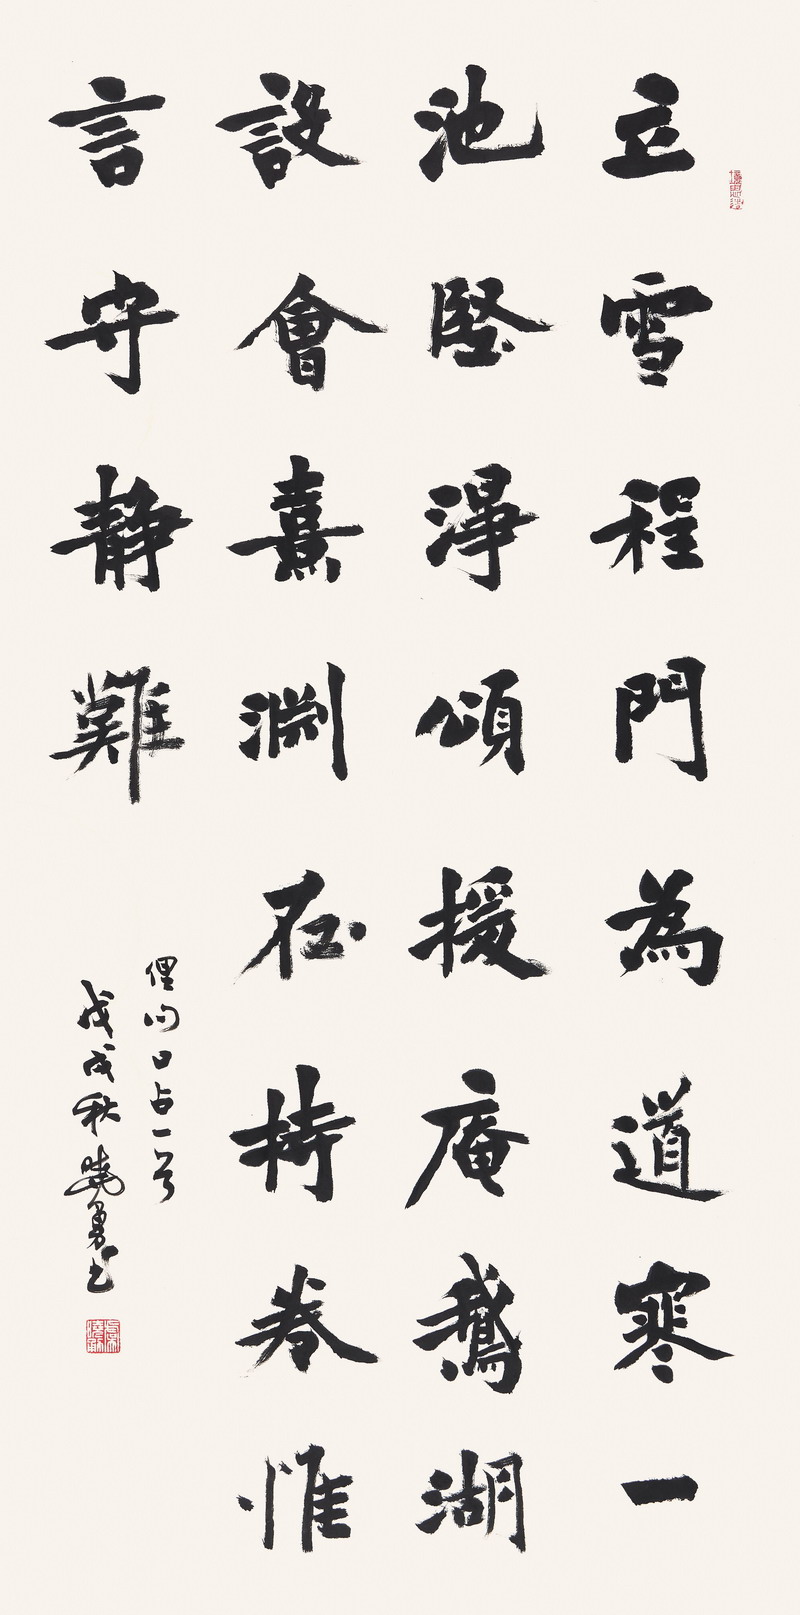 立雪程門為道寒一
池堅淨頌援庵鵝湖
設會熹淵在持卷惟
言守靜難
俚句口占一首
戊戌秋曉勇書